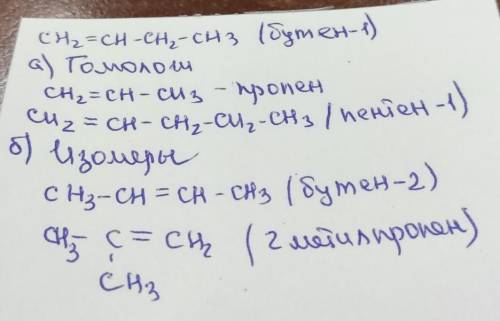 CH2=CH-CH2-CH3 (бутен-1)
а) Гомологи
CH2=CH-CH3 - пропен
CH2=CH-CH2-CH2-CH3 (пентен-1)
б) Изомеры
CH3-CH=CH-CH3 (бутен-2)
CH3-C=CH2 (2 метилпропен)
CH3